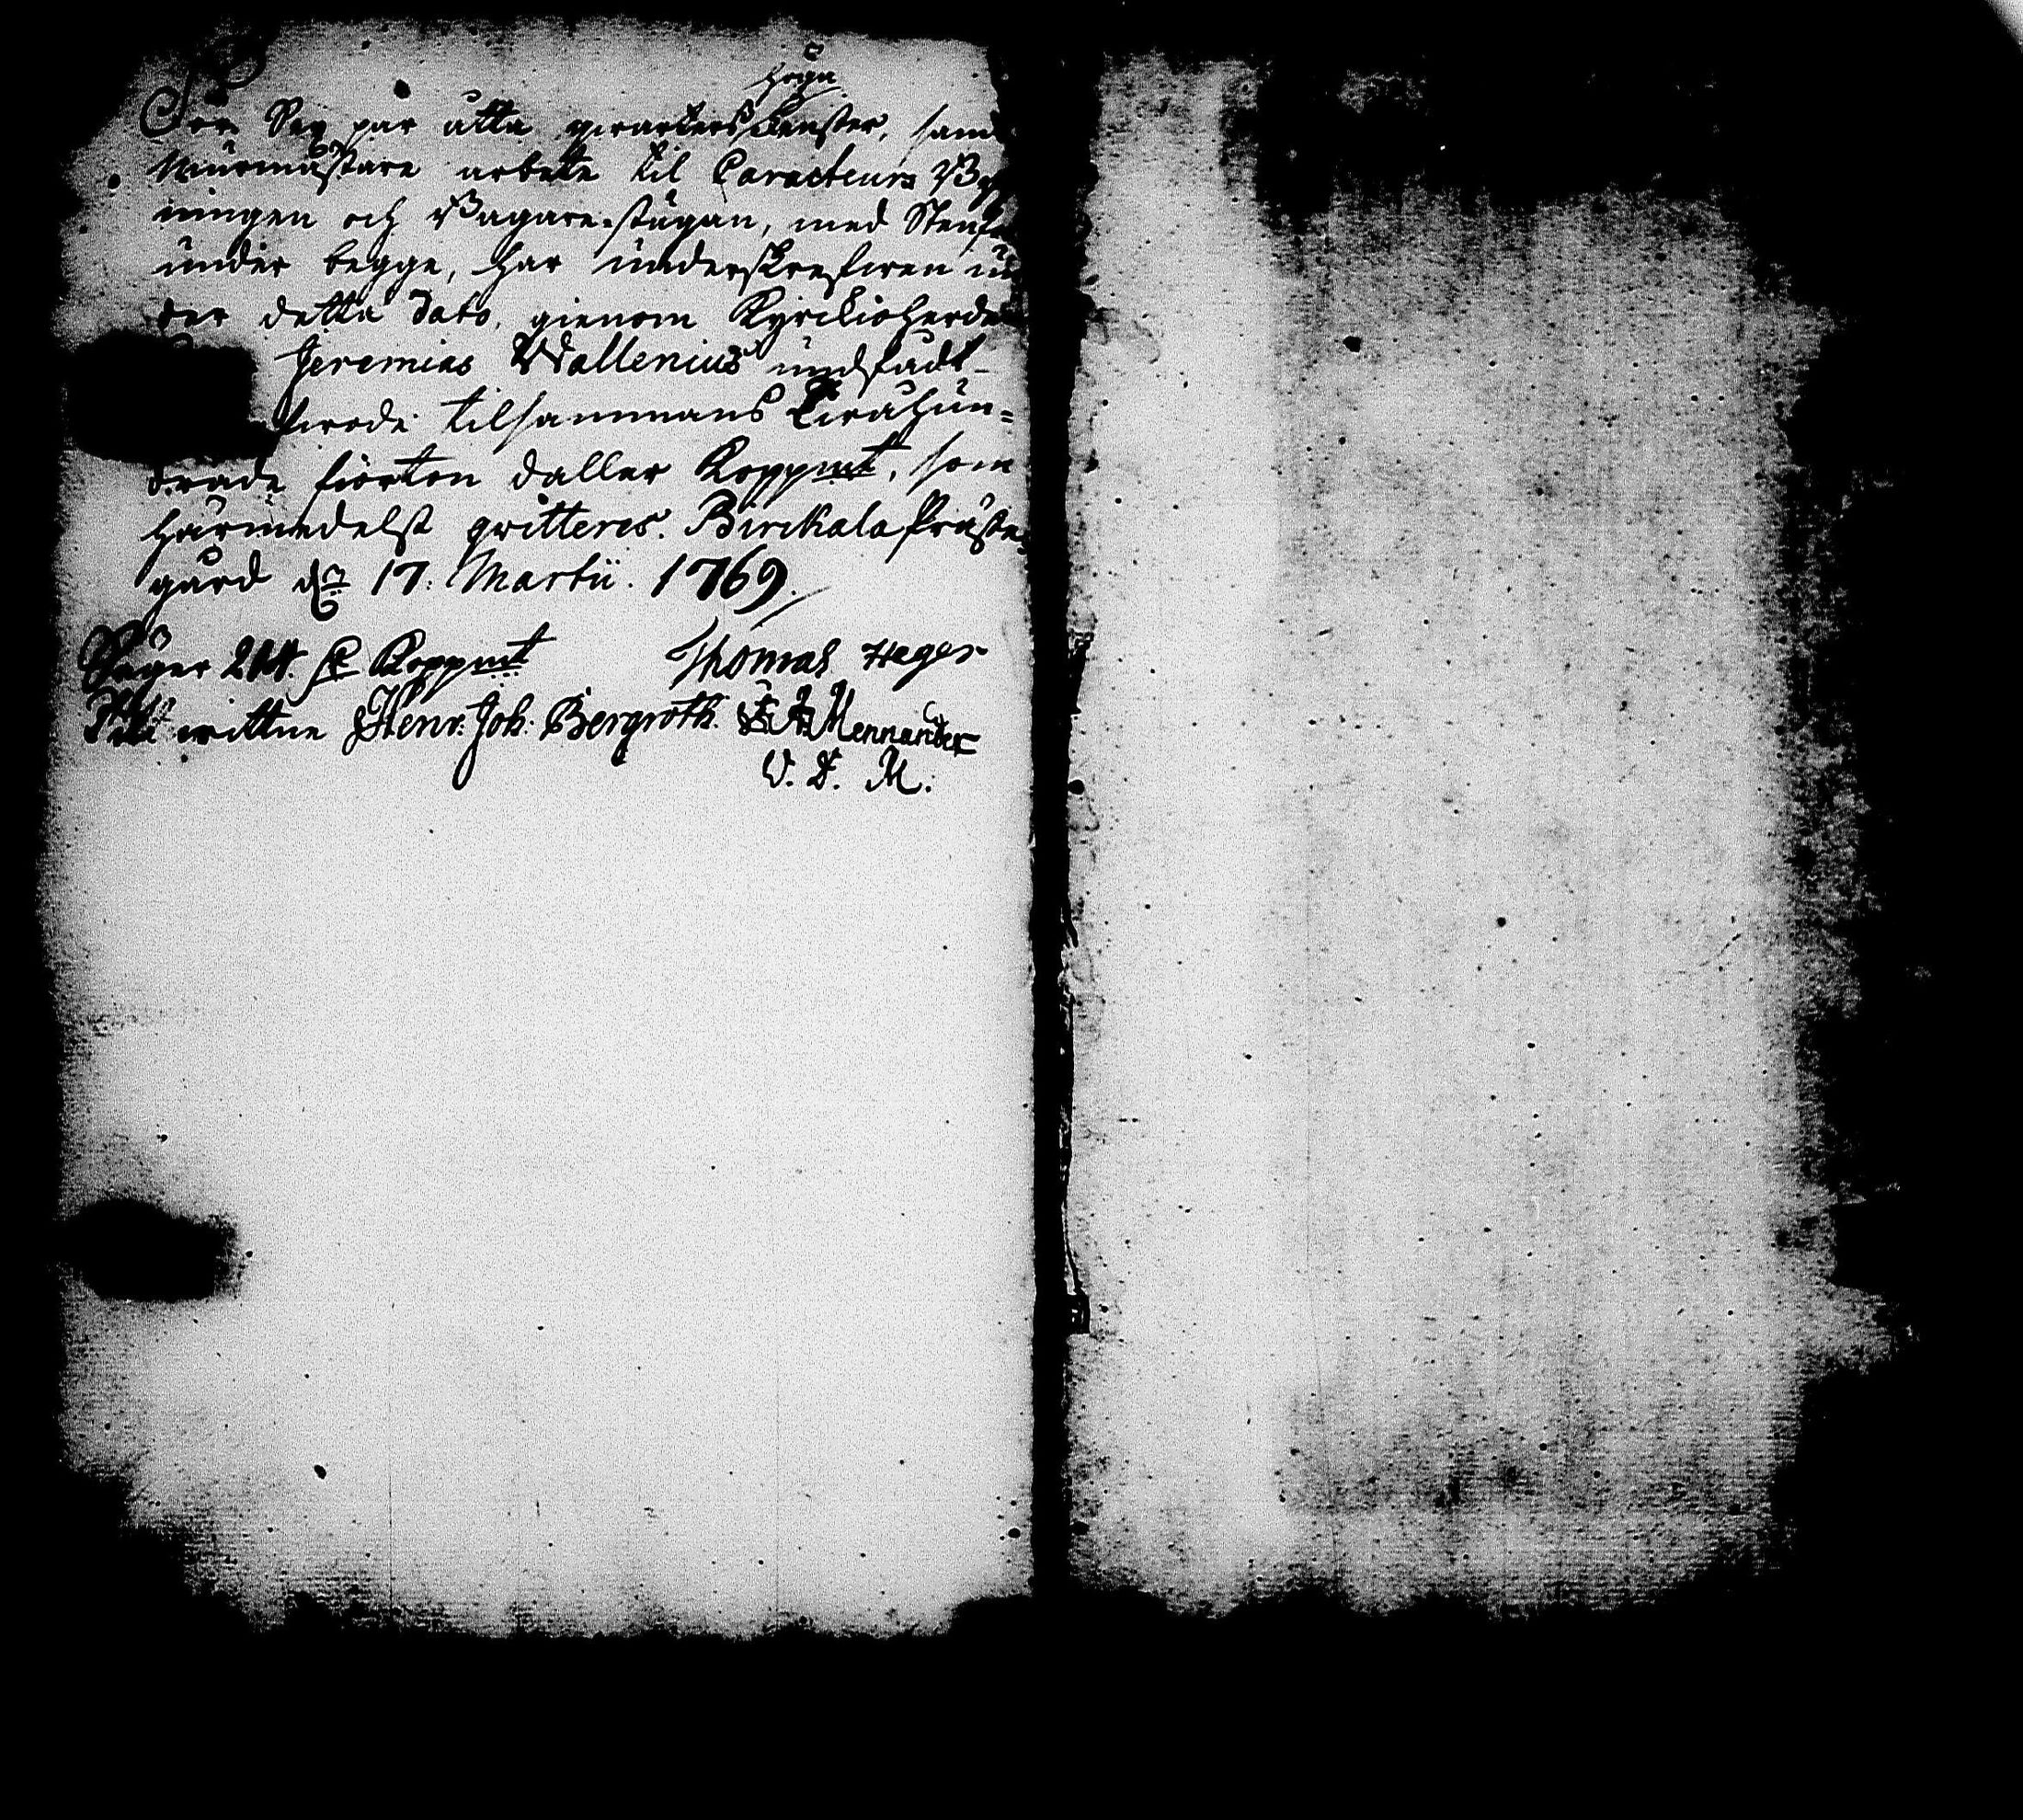 höga
För Sex par åtta qvarters fenster, samt
Murmästare arbete til Caracteurs Byg
ningen och Bagare-stugan, med Stenfot
under begge, har underskrefwen un
der detta dato, gienom Kyrckioherden
Jeremias Wallenius undfådt
tilsammans Tvåhun=
drade fiorton daller Koppmt, som
härmedelst qvitteres. Birckala Präste
gård d. 17. Martii. 1769.
Säger 214. Koppmt Thomas Hager
wittne Henr: Joh: Bergroth. Mennander
V. D. M.